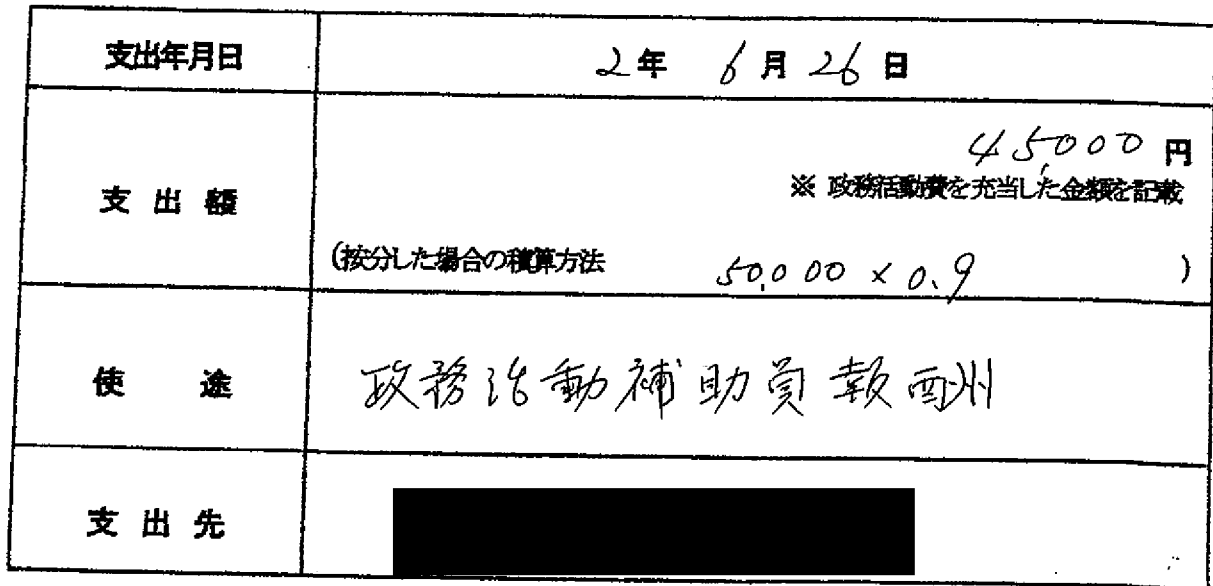 支出年月日 2年 6月26日
45,000円
※ 政務活動費を充当した金額を記載
支出額
(按分した場合の積算方法 50,000 × 0.9 )
使途 政務活動補助員報酬
支出先